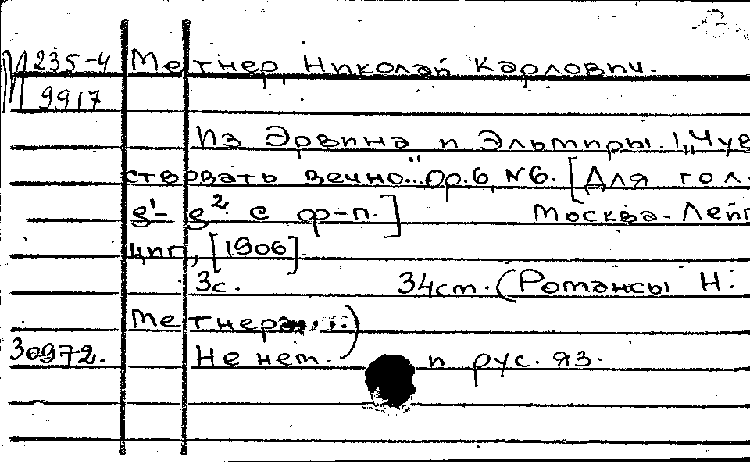 М 235-4 Метнер, Николай Карлович.
9917
Из Эрвина и Эльмиры. I „Чув
ствовать вечно..." Op.6, №6. [Для гол.
g¹- g² с ф-п.] Москва-Лейп
циг, [1906]
3с. 34см. (Романсы Н.
Метнера
30972. На нем. и рус. яз.